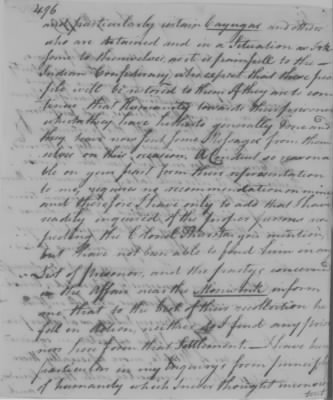 496
and particularly certain Cayugas and others
who are detained and in a Situation as irk
some to themselves, as it is painfull to the
Indian Confederacy, who expect that those peo
ple will be restored to them if they are to con
tinue that Humanity towards their prisoners
which they have hitherto generally and
they have now sent some from them
selves on this reason. A Conduct so reasona
ble on your part from their representation
to me requires no recommendation on mine
and therefore I have only to add that I have
readily inquired of the proper persons re
specting the Colonel you mention,
but I have not been able to find him in any
List of prisoners, and the partys concerned
in the affair near the inform
me that to the best of their recollection he
fell in Action, neither do I find any pris
oners here from that Settlement. I have been
particular in my Enquirys from principles
of humanity which I never thought